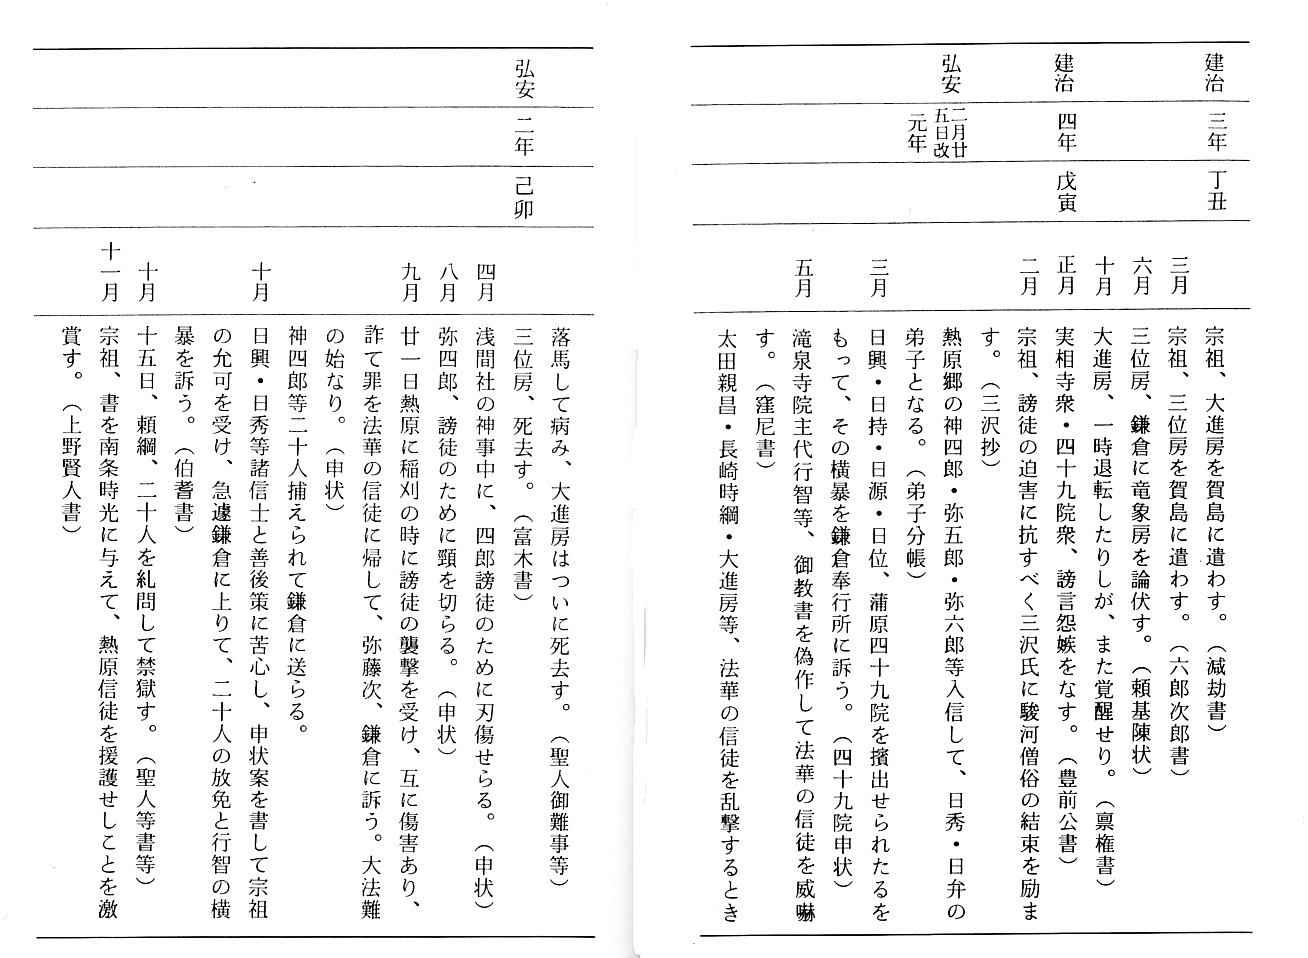 建治 三年 丁丑
宗祖、大進房を賀島に遣わす。（減劫書）
三月 宗祖、三位房を賀島に遣わす。（六郎次郎書）
六月 三位房、鎌倉に竜象房を論伏す。（頼基陳状）
十月 大進房、一時退転したりしが、また覚醒せり。（稟権書）
建治 四年 戊寅
正月 実相寺衆・四十九院衆、謗言怨嫉をなす。（豊前公書）
二月 宗祖、謗徒の迫害に抗すべく三沢氏に駿河僧俗の結束を励ま
す。（三沢抄）
弘安 二月廿五日改元年
熱原郷の神四郎・弥五郎・弥六郎等入信して、日秀・日弁の
弟子となる。（弟子分帳）
三月 日興・日持・日源・日位、蒲原四十九院を擯出せられたるを
もって、その横暴を鎌倉奉行所に訴う。（四十九院申状）
五月 滝泉寺院主代行智等、御教書を偽作して法華の信徒を威嚇
す。（窪尼書）
太田親昌・長崎時綱・大進房等、法華の信徒を乱撃するとき
落馬して病み、大進房はついに死去す。（聖人御難事等）
弘安 二年 己卯
三位房、死去す。（富木書）
四月 浅間社の神事中に、四郎謗徒のために刃傷せらる。（申状）
八月 弥四郎、謗徒のために頸を切らる。（申状）
九月 廿一日熱原に稲刈の時に謗徒の襲撃を受け、互に傷害あり、
詐て罪を法華の信徒に帰して、弥藤次、鎌倉に訴う。大法難
の始なり。（申状）
神四郎等二十人捕えられて鎌倉に送らる。
十月 日興・日秀等諸信士と善後策に苦心し、申状案を書して宗祖
の允可を受け、急遽鎌倉に上りて、二十人の放免と行智の横
暴を訴う。（伯耆書）
十月 十五日、頼綱、二十人を糺問して禁獄す。（聖人等書等）
十一月 宗祖、書を南条時光に与えて、熱原信徒を援護せしことを激
賞す。（上野賢人書）